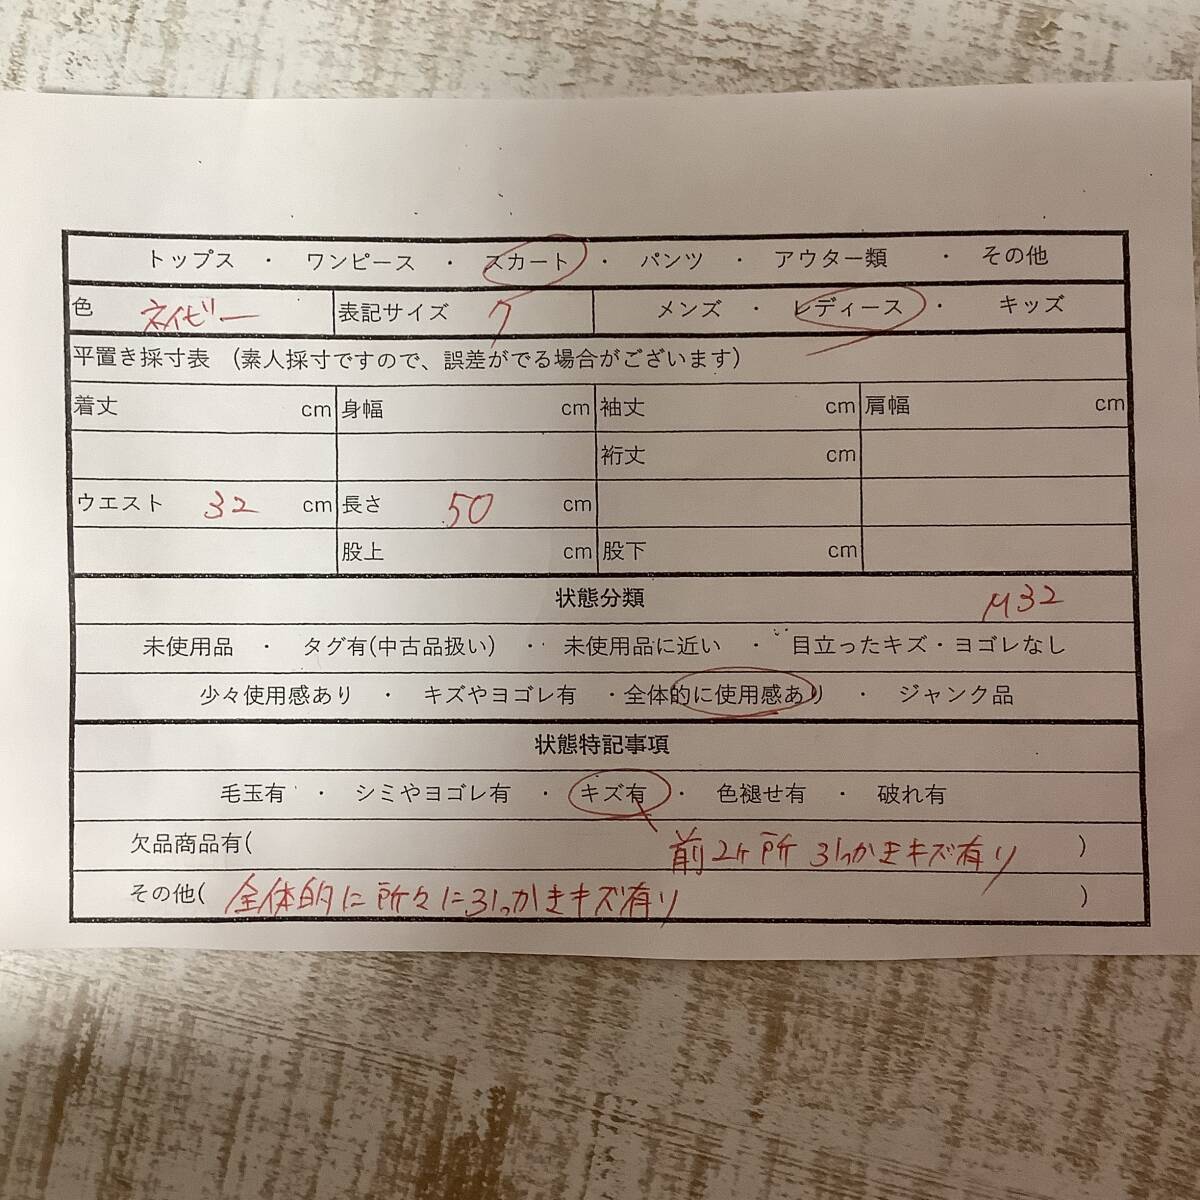 トップス ・ ワンピース ・ スカート ・ パンツ ・ アウター類 ・ その他
色 ネイビー 表記サイズ 7 メンズ ・ レディース ・ キッズ
平置き採寸表 （素人採寸ですので、誤差がでる場合がございます）
着丈 cm 身幅 cm 袖丈 cm 肩幅 cm
裄丈 cm
ウエスト 32 cm 長さ 50 cm
股上 cm 股下 cm
状態分類 M32
未使用品 ・ タグ有(中古品扱い) ・ 未使用品に近い ・ 目立ったキズ・ヨゴレなし
少々使用感あり ・ キズやヨゴレ有 ・全体的に使用感あり ・ ジャンク品
状態特記事項
毛玉有 ・ シミやヨゴレ有 ・ キズ有 ・ 色褪せ有 ・ 破れ有
欠品商品有( 前2ヶ所 引っかきキズ有り )
その他( 全体的に所々に引っかきキズ有り )